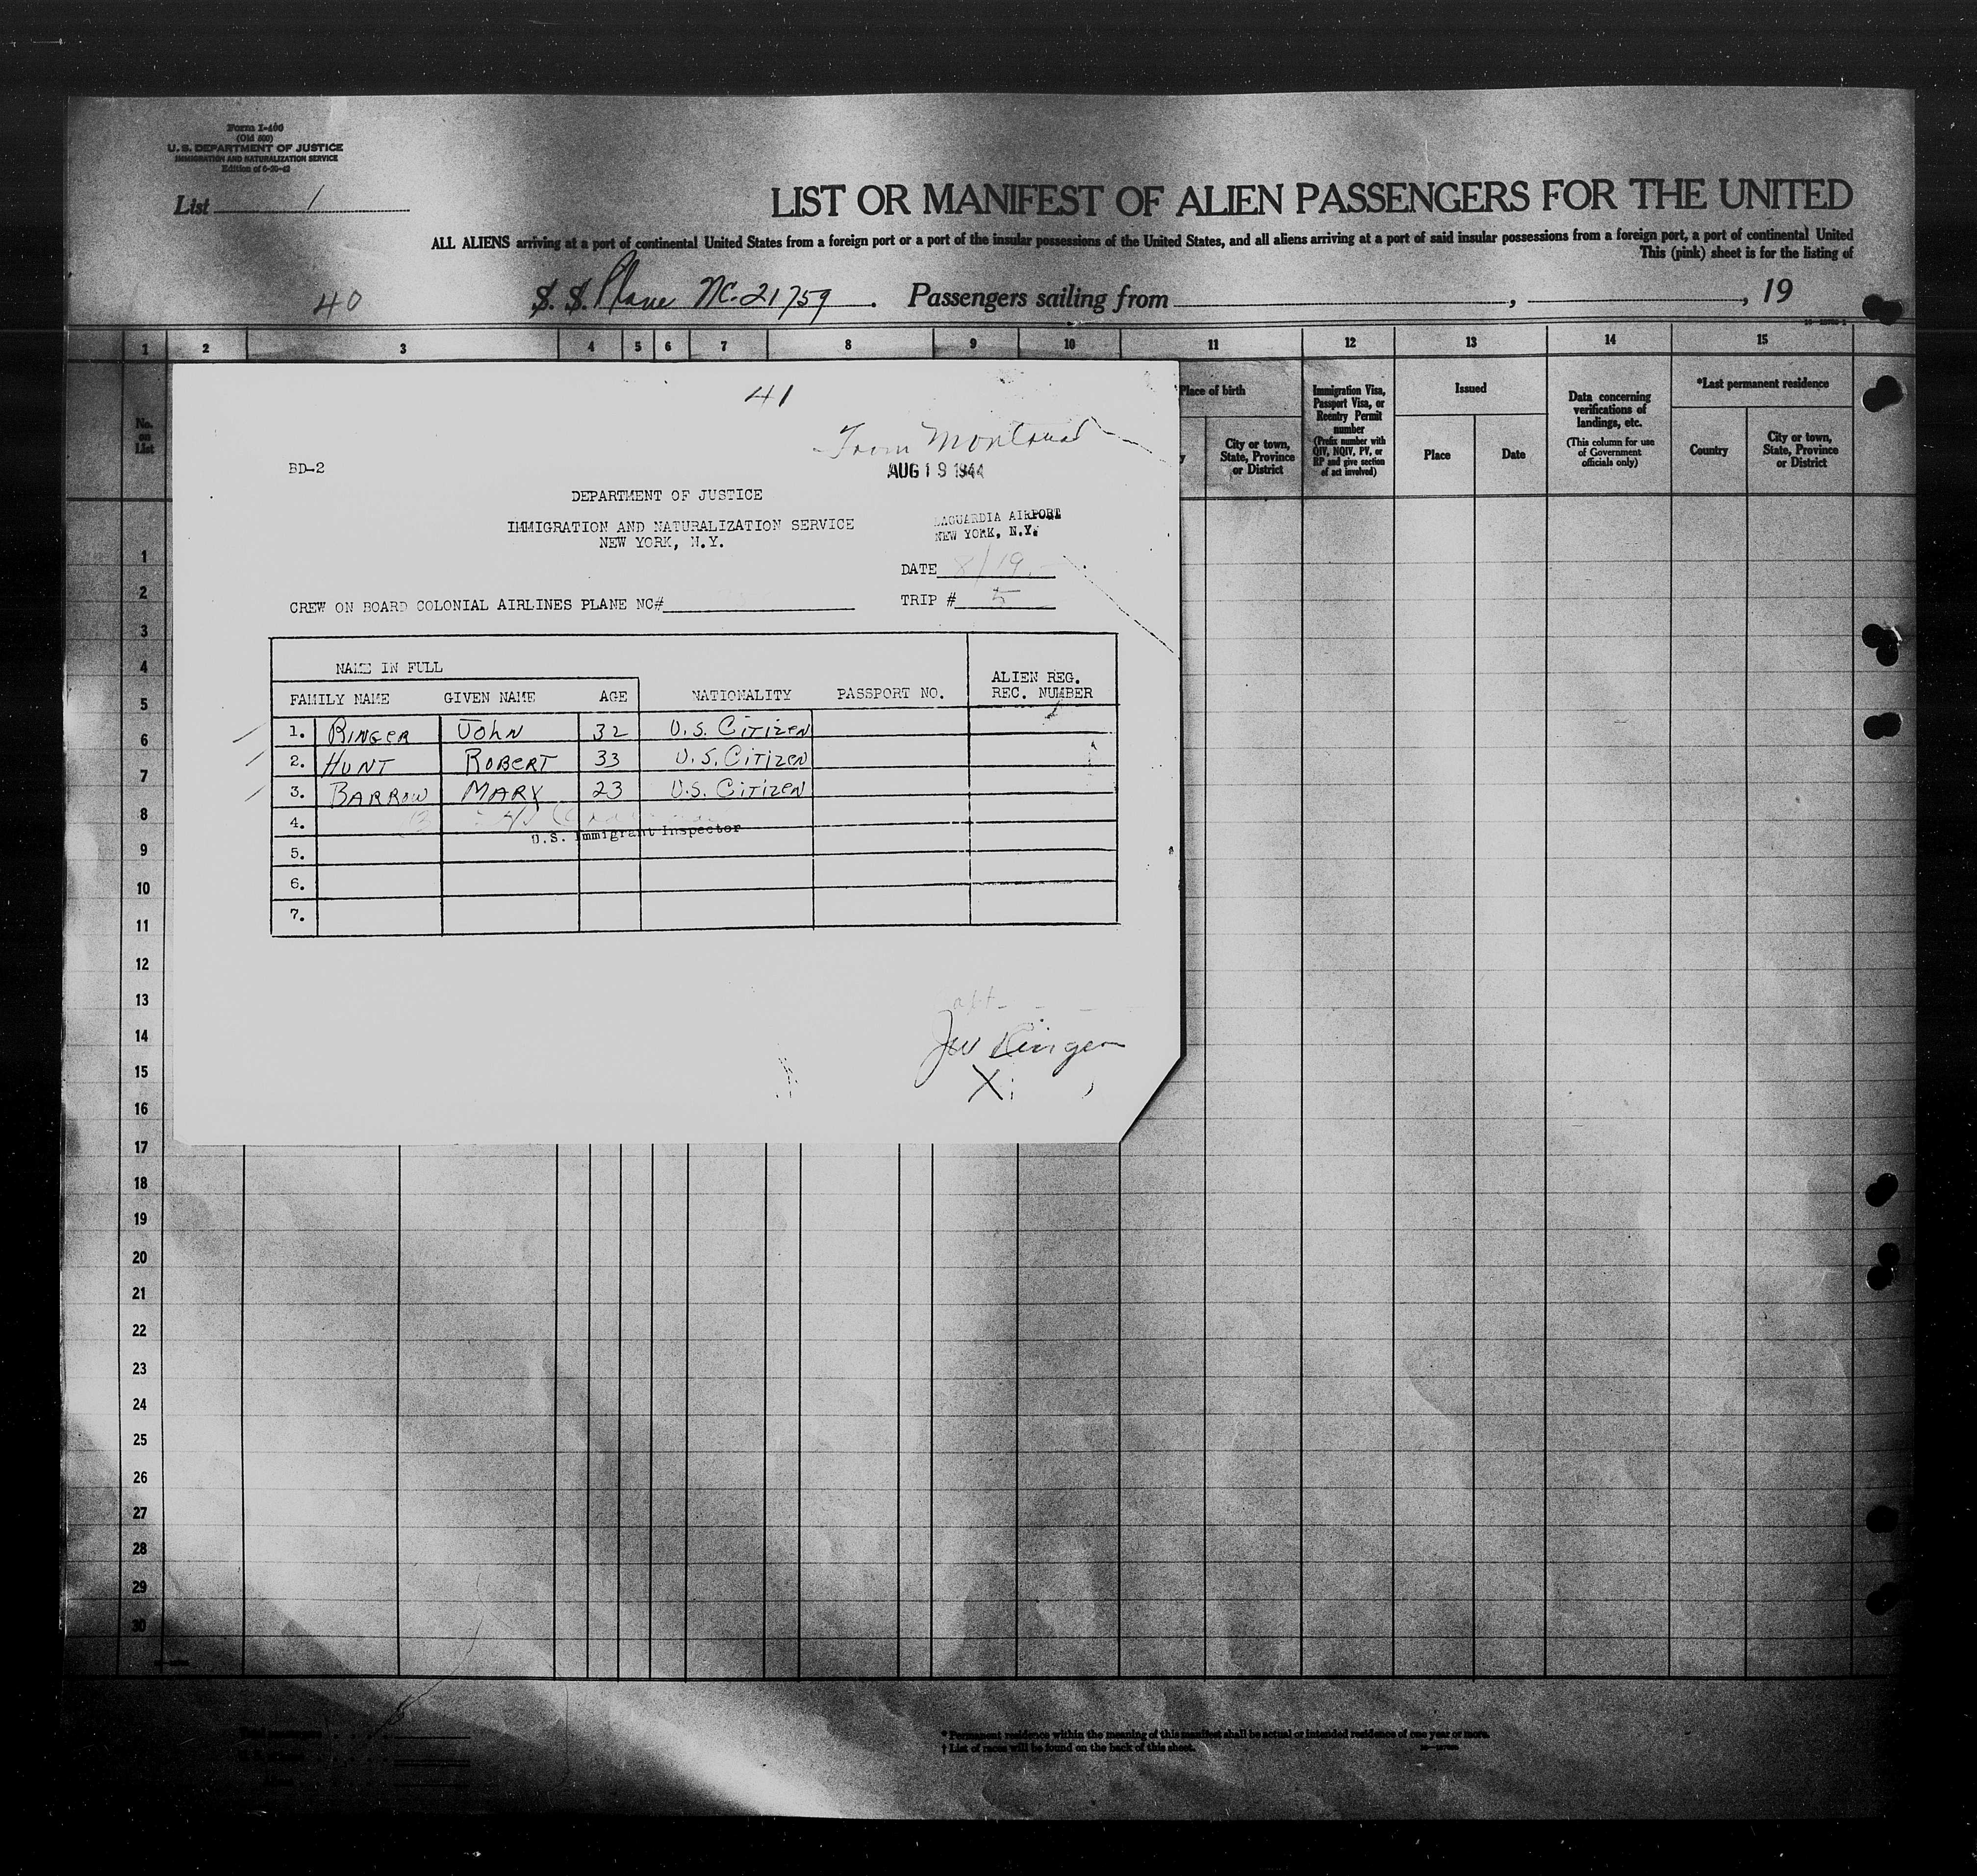 Form I-400
(Old 500)
U. S. DEPARTMENT OF JUSTICE
IMMIGRATION AND NATURALIZATION SERVICE
List 1
LIST OR MANIFEST OF ALIEN PASSENGERS FOR THE UNITED
ALL ALIENS arriving at a port of continental United States from a foreign port or a port of the insular possessions of the United States, and all aliens arriving at a port of said insular possessions from a foreign port, a port of continental United
This (pink) sheet is for the listing of
40
S. S. Plane NC-21759. Passengers sailing from , , 19
1 2 3 4 5 6 7 8 9 10 11 12 13 14 15
No. on List
Place of birth
City or town, State, Province or District
Immigration Visa, Passport Visa, or Reentry Permit number
(Prefix number with QIV, NQIV, PV, or RP and give section of act involved)
Issued
Place
Date
Data concerning verifications of landings, etc.
(This column for use of Government officials only)
*Last permanent residence
Country
City or town, State, Province or District
41
From Montreal
BD-2
AUG 19 1944
DEPARTMENT OF JUSTICE
IMMIGRATION AND NATURALIZATION SERVICE
NEW YORK, N.Y.
LAGUARDIA AIRPORT
NEW YORK, N.Y.
DATE 8/19
CREW ON BOARD COLONIAL AIRLINES PLANE NC#
TRIP # 5
NAME IN FULL
FAMILY NAME GIVEN NAME AGE NATIONALITY PASSPORT NO. ALIEN REG. REC. NUMBER
1. RINGER JOHN 32 U.S. CITIZEN
2. HUNT ROBERT 33 U.S. CITIZEN
3. BARROW MARY 23 U.S. CITIZEN
4.
U.S. Immigrant Inspector
5.
6.
7.
JW Ringer
X
1
2
3
4
5
6
7
8
9
10
11
12
13
14
15
16
17
18
19
20
21
22
23
24
25
26
27
28
29
30
* Permanent residence within the meaning of this manifest shall be actual or intended residence of one year or more.
† List of races will be found on the back of this sheet.